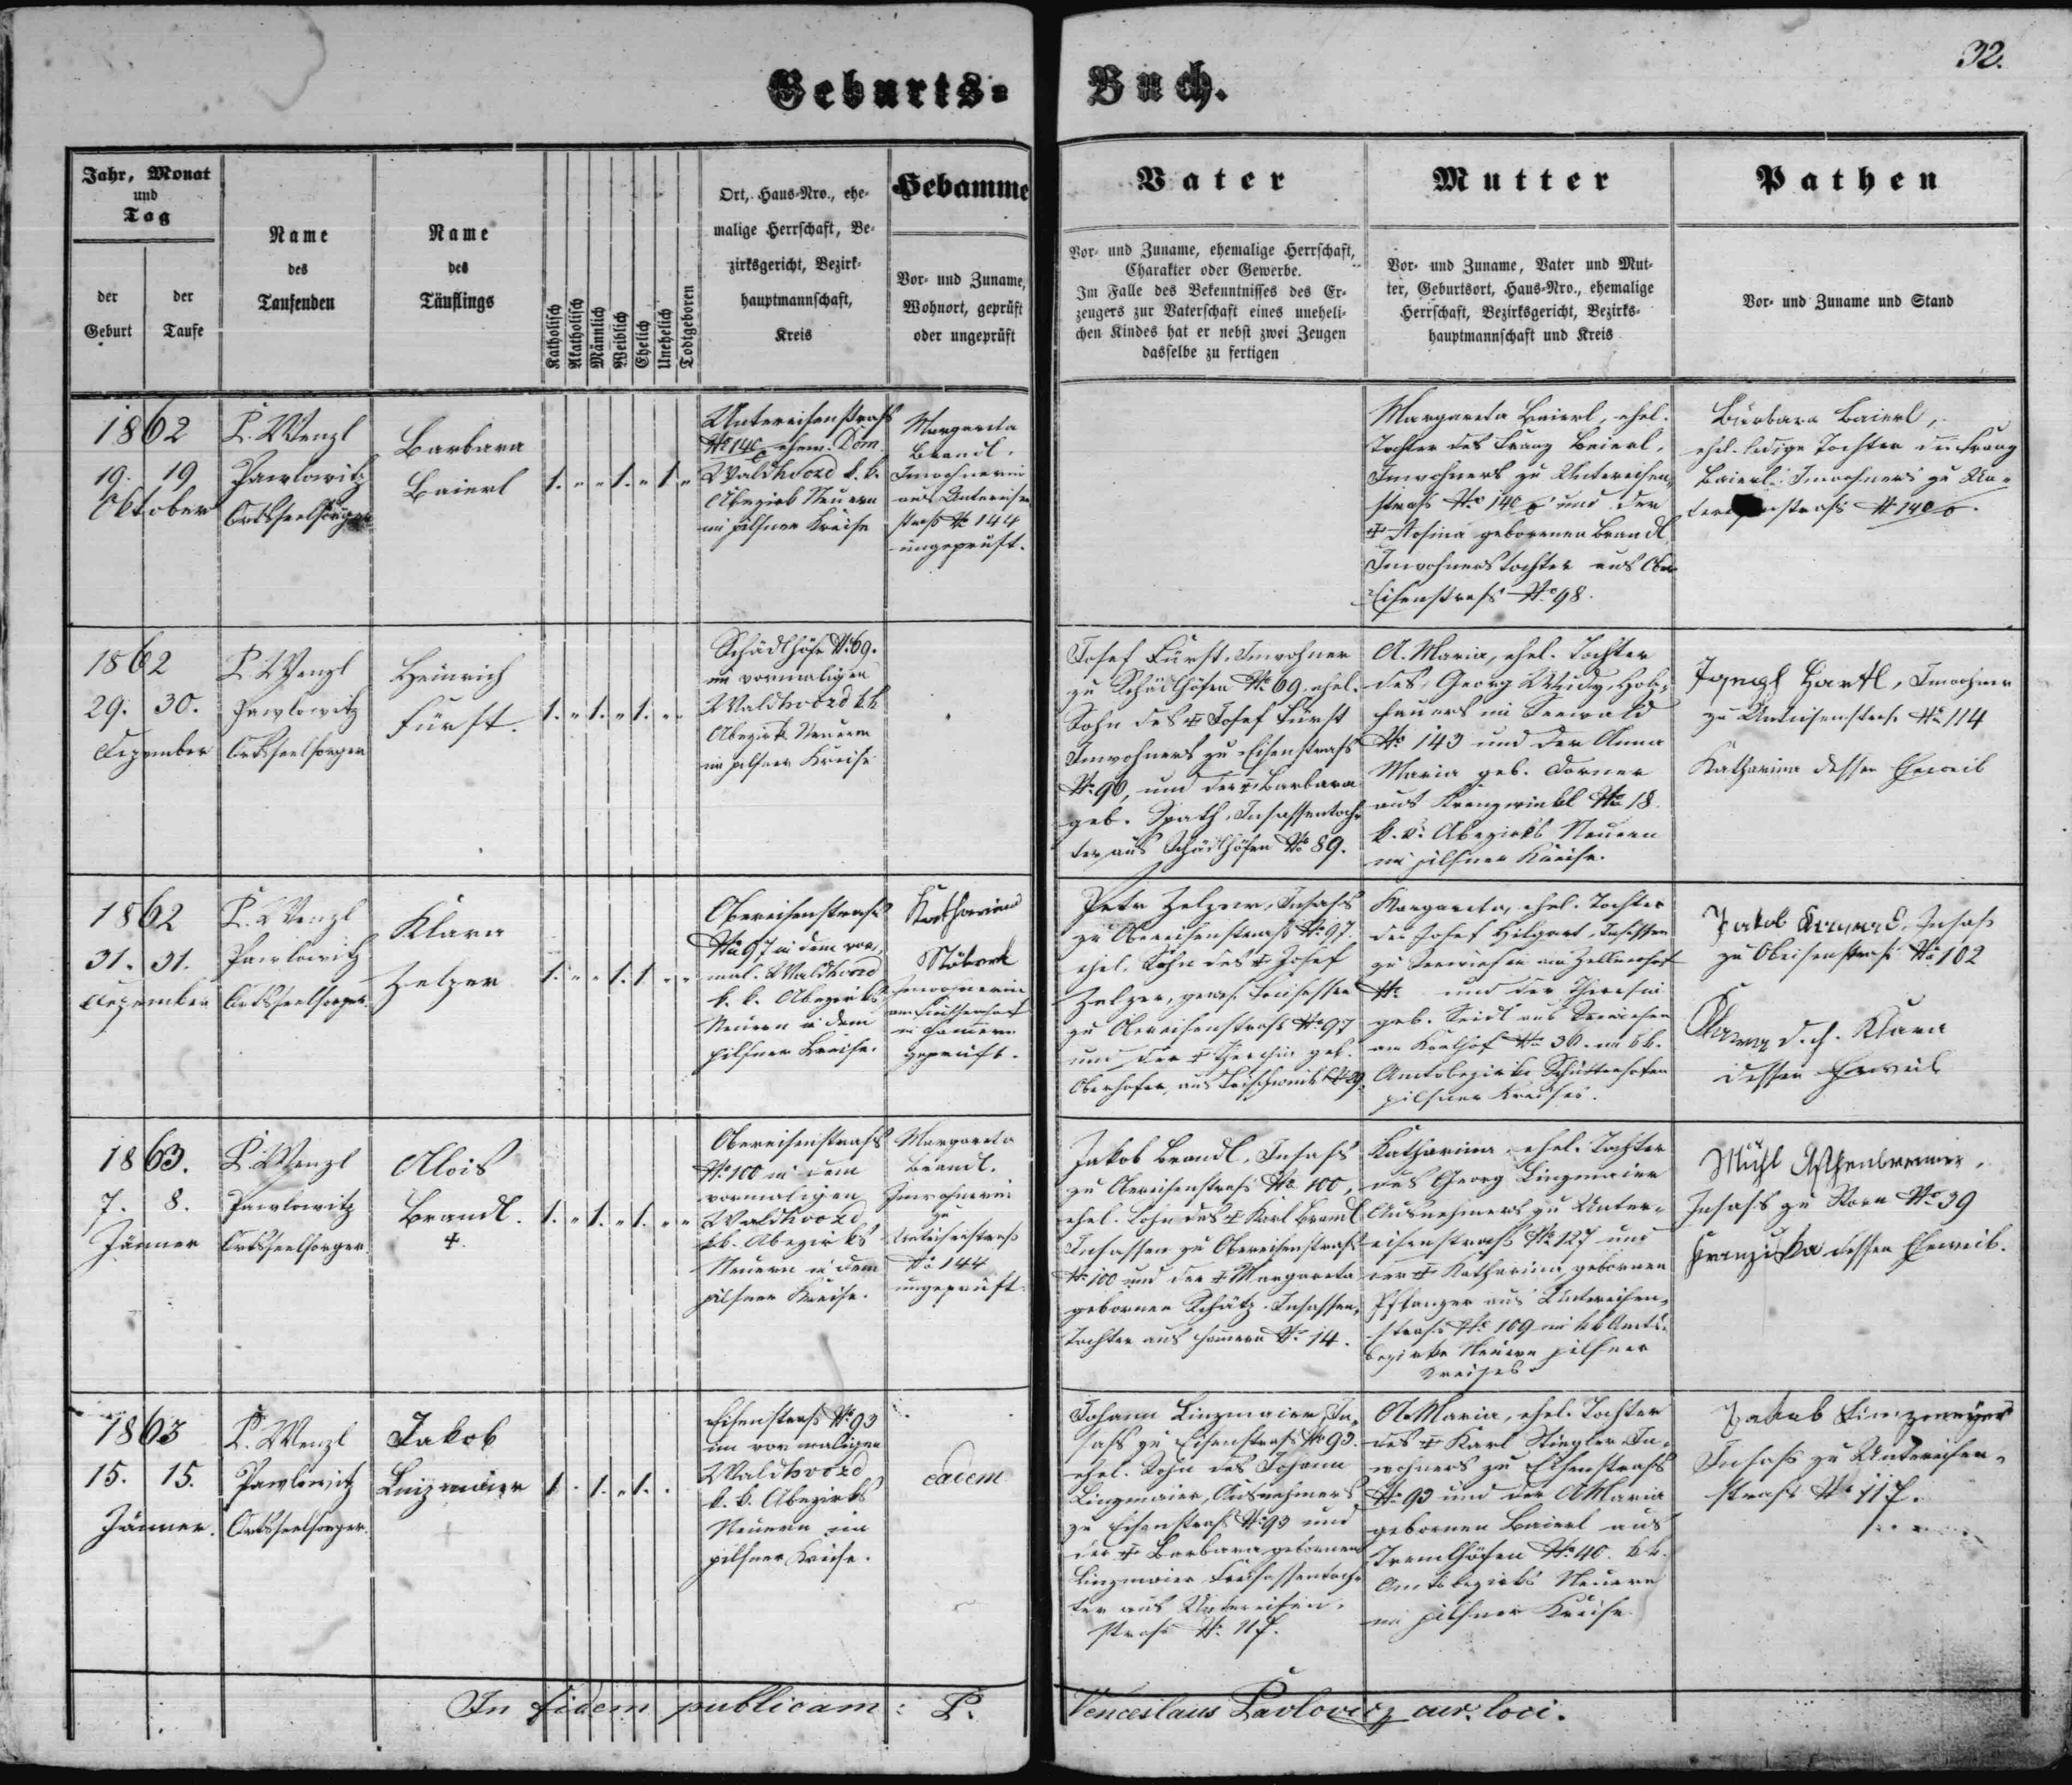 32.
Geburts= Buch.
Jahr, Monat
und
Tag
der
Geburt
der
Taufe
Name
des
Taufenden
Name
des
Täuflings
Katholisch
Akatholisch
Männlich
Weiblich
Ehelich
Unehelich
Todtgeboren
Ort, Haus-Nro., ehe-
malige Herrschaft, Be-
zirksgericht, Bezirk-
hauptmannschaft,
Kreis
Hebamme
Vor- und Zuname,
Wohnort, geprüft
oder ungeprüft
Vater
Vor- und Zuname, ehemalige Herrschaft,
Charakter oder Gewerbe.
Im Falle des Bekenntnisses des Er-
zeugers zur Vaterschaft eines uneheli-
chen Kindes hat er nebst zwei Zeugen
dasselbe zu fertigen
Mutter
Vor- und Zuname, Vater und Mut-
ter, Geburtsort, Haus-Nro., ehemalige
Herrschaft, Bezirksgericht, Bezirks-
hauptmannschaft und Kreis
Pathen
Vor- und Zuname und Stand
1862
19. 19
Oktober
P. Wenzl
Pawlowitz
Ortsseelsorger
Barbara
Baierl
1. " " 1. " 1 "
Untereisenstraß
No 140 ehem. Dom
Waldhwozd k. k.
Abezirk Neuern
im pilsner Kreise
Margareta
Brandl,
Inwohnerin
aus Untereisen
straß No 144
ungeprüft.
Margareta Baierl, ehel.
Tochter des Franz Baierl,
Inwohners zu Untereisen,
straß No 140 und der
‡ Rosina gebornen Brandl,
Inwohnerstochter aus Ober
Eisenstraß No 98.
Barbara Baierl,
ehel. ledige Tochter des Franz
Baierl Inwohners zu Un-
straß No 140
1862
29. 30.
Dezember
P. Wenzl
Pawlowitz
Ortsseelsorger
Heinrich
Fürst.
1. " 1. " 1. " "
Schädlhöfe No 69.
im vormaligen
Waldhwozd k k
Abezirk Neuern
im pilsner Kreise
Josef Fürst, Inwohner
zu Schädlhöfen No 69, ehel.
Sohn des ‡ Josef Fürst
Inwohners zu Eisenstraß
No 90, und der ‡ Barbara
geb. Spath, Insassentoch
ter aus Schädlhöfen No 89.
A. Maria, ehel. Tochter
des Georg Wudy, Holz-
hauers im Seewald
No 143 und der Anna
Maria geb. Dorner
aus Kreuzwinkl No 18.
k. k. Abezirks Neuern
im pilsner Kreise.
Hartl, Inwohner
zu Untereisenstraß No 114
Katharina dessen Eheweib
1862
31. 31.
Dezember
P. Wenzl
Pawlowitz
Ortsseelsorger.
Klara
Zelzer
1. " " 1. 1. " "
Obereisenstraß
No 97 in dem vor-
mal. Waldhwozd
k. k. Abezirks
Neuern in dem
pilsner Kreise.
Katharina
Inwohnerin
in Hammern
geprüft.
Petr Zelzer, Insaß
zu Obereisenstraß No 97.
ehel. Sohn des ‡ Josef
Zelzer, gewes. Insassen
zu Obereisenstraß No 97
und der ‡ Theresia geb.
Oberhofer aus
Margareta, ehel. Tochter
des Josef Hilgart, Insassen
zu Seewiesen
No und der Theresia
geb. Seidl aus Seewiesen
am No 36. im k k.
Amtsbezirke Schüttenhofen
pilsner Kreises.
Jakob Insaß
zu Obeisenstraß No 102
Klara
dessen Eheweib
1863.
7. 8.
Jänner
P. Wenzl
Pawlowitz
Ortsseelsorger.
Alois
Brandl.
‡.
1. " 1. " 1. " "
Obereisenstraß
No 100 in dem
vormaligen
Waldhwozd
k k. Abezirks
Neuern in dem
pilsner Kreise.
Margareta
Brandl.
Inwohnerin
zu
Untereisenstraß
No 144
ungeprüft.
Jakob Brandl, Insaß
zu Obereisenstraß No 100,
ehel. Sohn des ‡ Karl Brandl
Insassen zu Obereisenstraß
No 100 und der ‡ Margareta
gebornen Schätz, Insassen,
Tochter aus Hammern No 14.
Katharina, ehel. Tochter
des Georg Linzmaier
Ausnehmers zu Unter-
eisenstraß No 127 und
der ‡ Katharina, gebornen
Pflanzer aus Untereisen-
straß No 109 im k k Amts-
bezirke Neuern pilsner
Kreises
Michl Aschenbrenner,
Insaß zu Storn No 39
Franziska dessen Eheweib.
1863
15. 15.
Jänner.
P. Wenzl
Pawlowitz
Ortsseelsorger.
Jakob
Linzmaier
1. 1. " 1. "
Eisenstraß No 93
im vormaligen
Waldhwozd
k. k. Abezirks
Neuern im
pilsner Kreise.
eadem
Johann Linzmaier, In-
saß zu Eisenstraß No 93.
ehel. Sohn des Johann
Linzmaier, Ausnehmers
zu Eisenstraß No 93 und
der ‡ Barbara gebornen
Linzmaier Insassentoch
ter aus Untereisen-
straß No 117.
A. Maria, ehel. Tochter
des ‡ Karl Stiegler In-
wohners zu Eisenstraß
No 93 und der A Maria
gebornen Baierl aus
Tremlhöfen No 40. k k.
Amtsbezirks Neuern
im pilsner Kreise
Jakob Linzmeyer
Insaß zu Untereisen-
straß No 117.
In fidem publicam: P. Venceslaus Pavlovicz cur. loci.